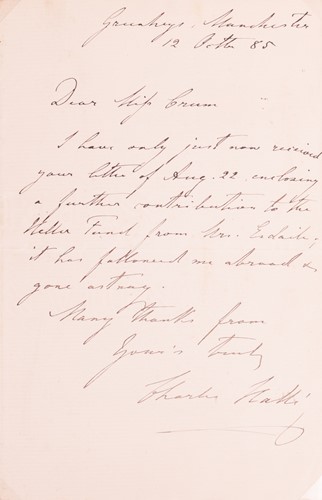 Greenheys. Manchester
12 Octbr 85
Dear Miss Crum
I have only just now received
your letter of Aug. 22. enclosing
a further contribution to the
Fund from Mrs.
it has followed me abroad &
gone astray.
Many thanks from
Yours truly
Charles Hallé